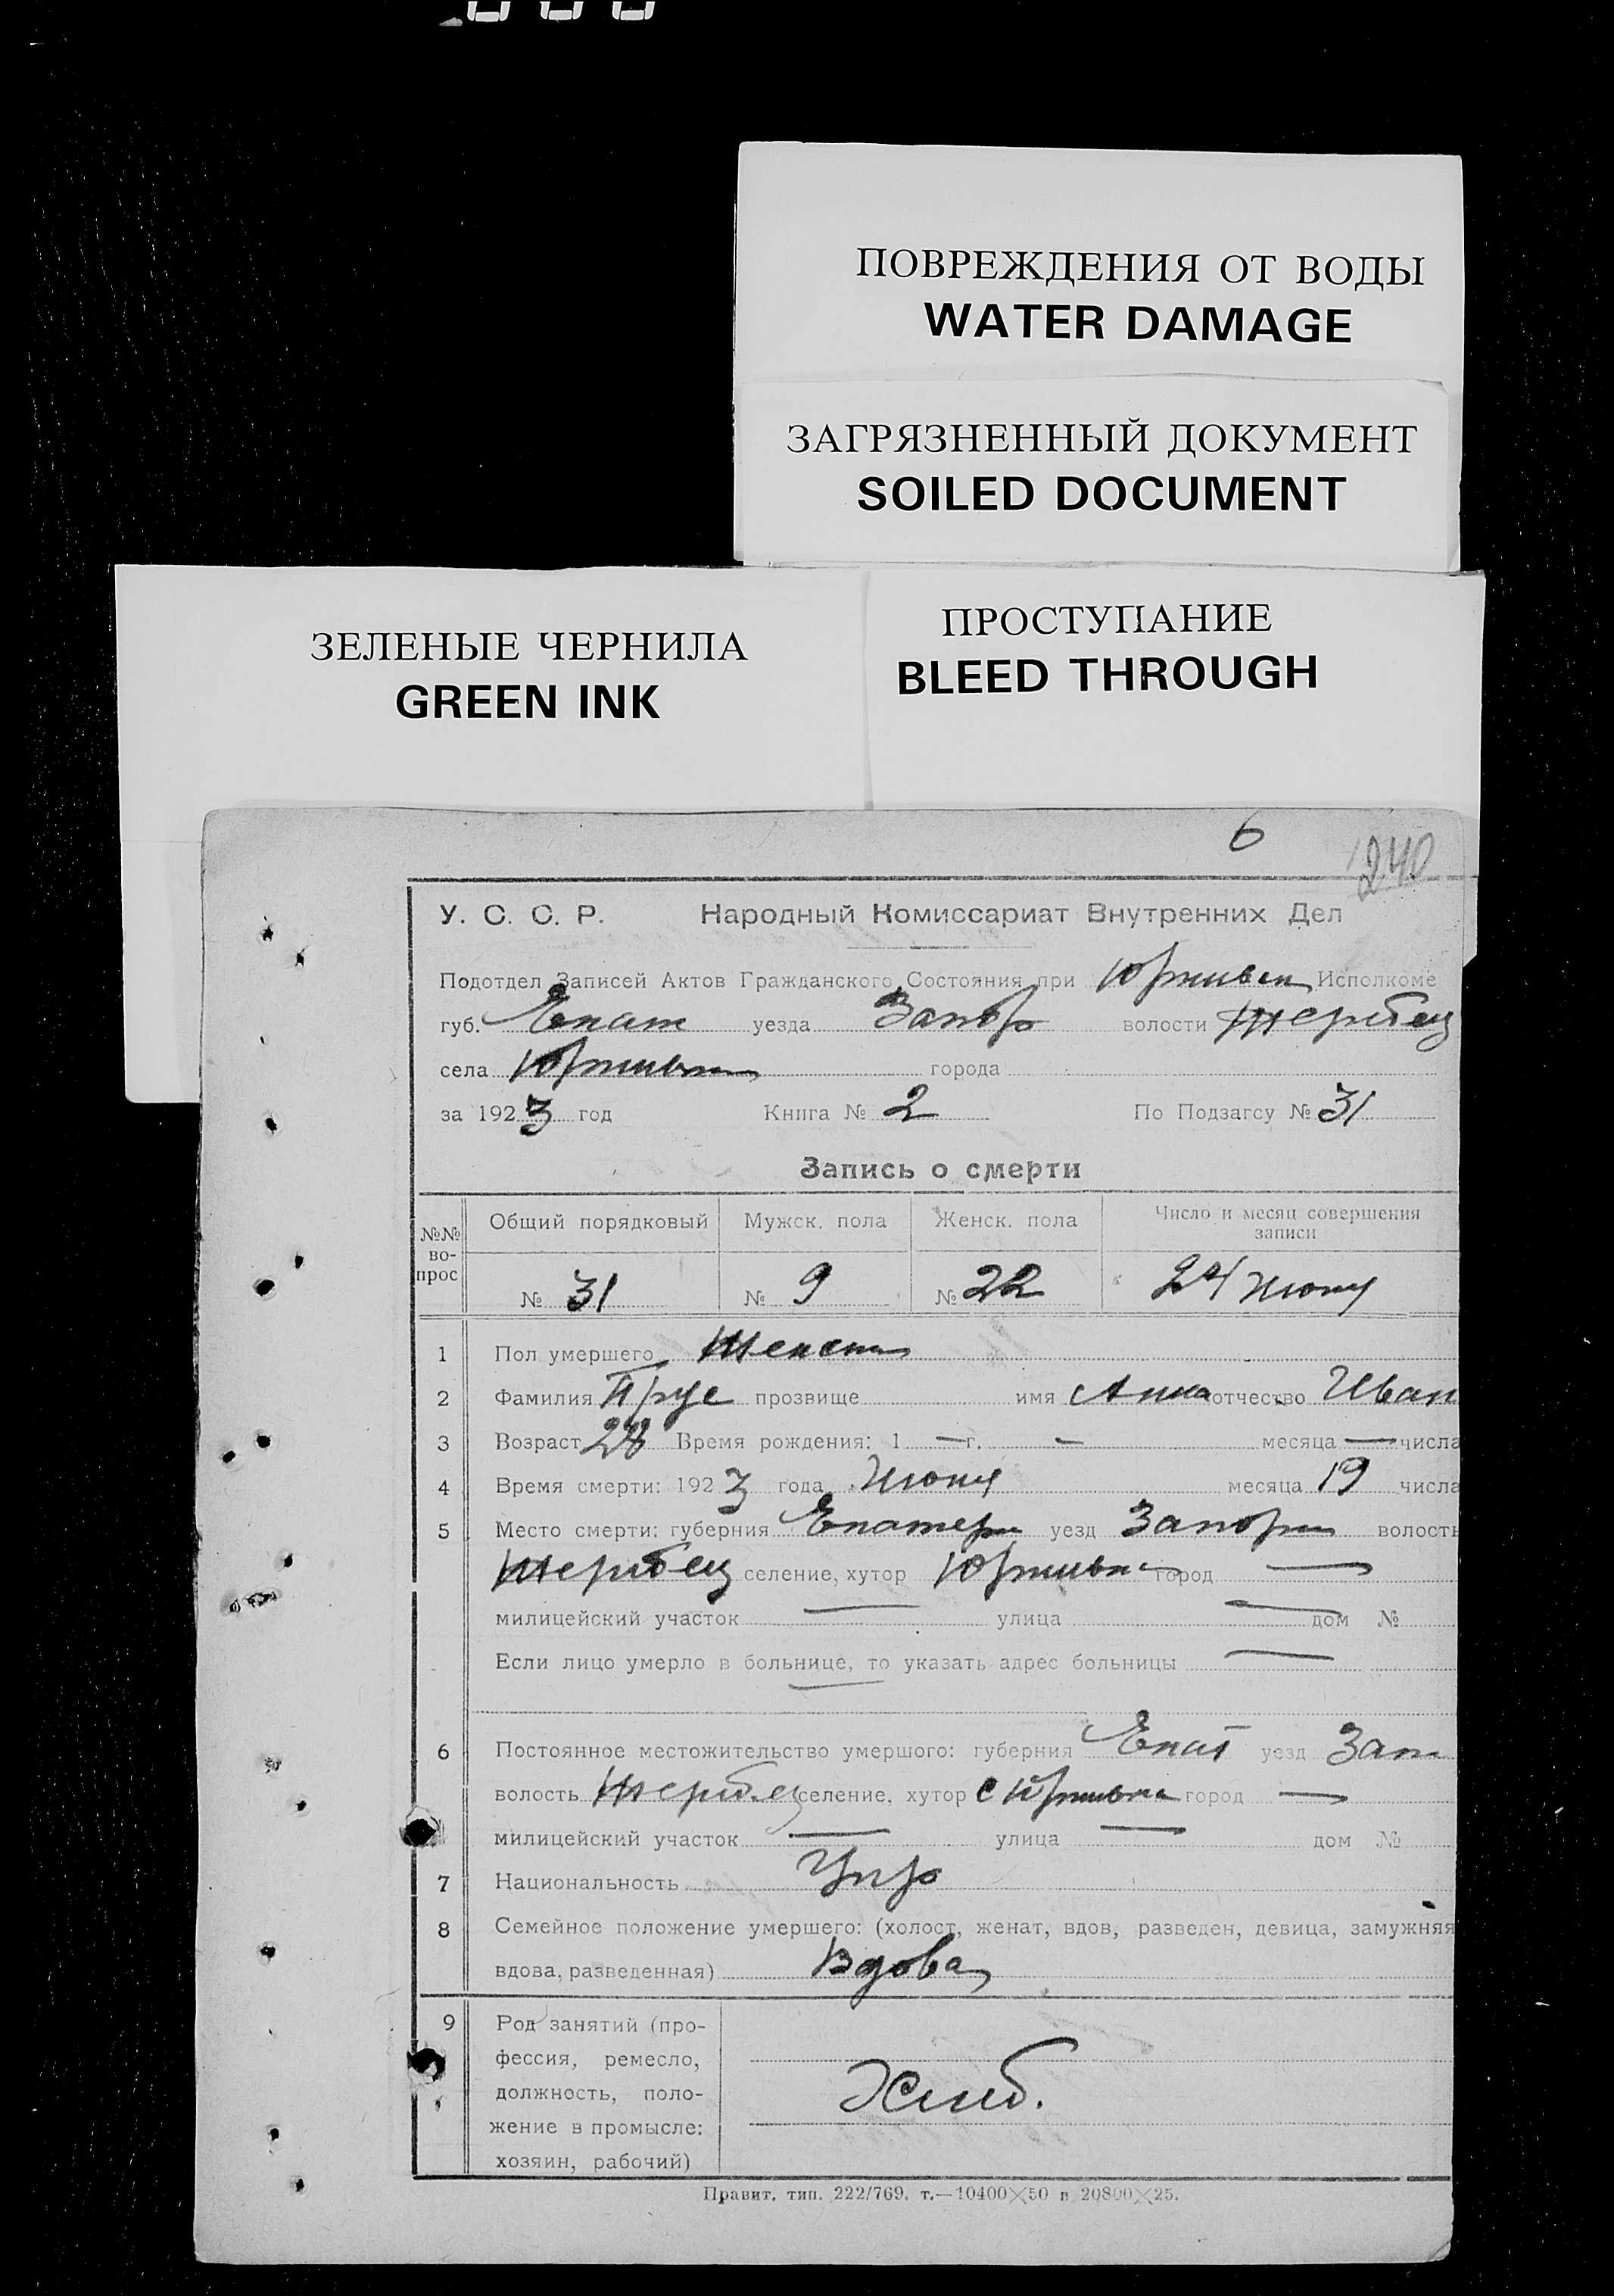 ПОВРЕЖДЕНИЯ ОТ ВОДЫ
WATER DAMAGE
ЗАГРЯЗНЕННЫЙ ДОКУМЕНТ
SOILED DOCUMENT
ЗЕЛЕНЫЕ ЧЕРНИЛА
GREEN INK
ПРОСТУПАНИЕ
BLEED THROUGH
6
240
У. С. С. Р. Народный Комиссариат Внутренних Дел
Подотдел Записей Актов Гражданского Состояния при Исполкоме
губ. Екат уезда Запор волости Жеребец
села города
за 1923 год Книга № 2 По Подзагсу № 31
Запись о смерти
№№ во-прос Общий порядковый Мужск. пола Женск. пола Число и месяц совершения записи
№ 31 № 9 № 22 24 Июня
1 Пол умершего Женск
2 Фамилия прозвище имя Анна отчество Иван
3 Возраст 28 Время рождения: 1 — г. — месяца — числа
4 Время смерти: 1923 года Июня месяца 19 числа
5 Место смерти: губерния Екатер уезд Запор волость
Жеребец селение, хутор город —
милицейский участок — улица — дом №
Если лицо умерло в больнице, то указать адрес больницы —
6 Постоянное местожительство умершого: губерния Екат уезд Зап
волость Жеребец селение, хутор с город —
милицейский участок — улица — дом №
7 Национальность Укр
8 Семейное положение умершего: (холост, женат, вдов, разведен, девица, замужняя
вдова, разведенная) Вдова
9 Род занятий (про-
фессия, ремесло,
должность, поло-
жение в промысле:
хозяин, рабочий)
Хлеб.
Правит. тип. 222/769. т.—10400×50 и 20800×25.